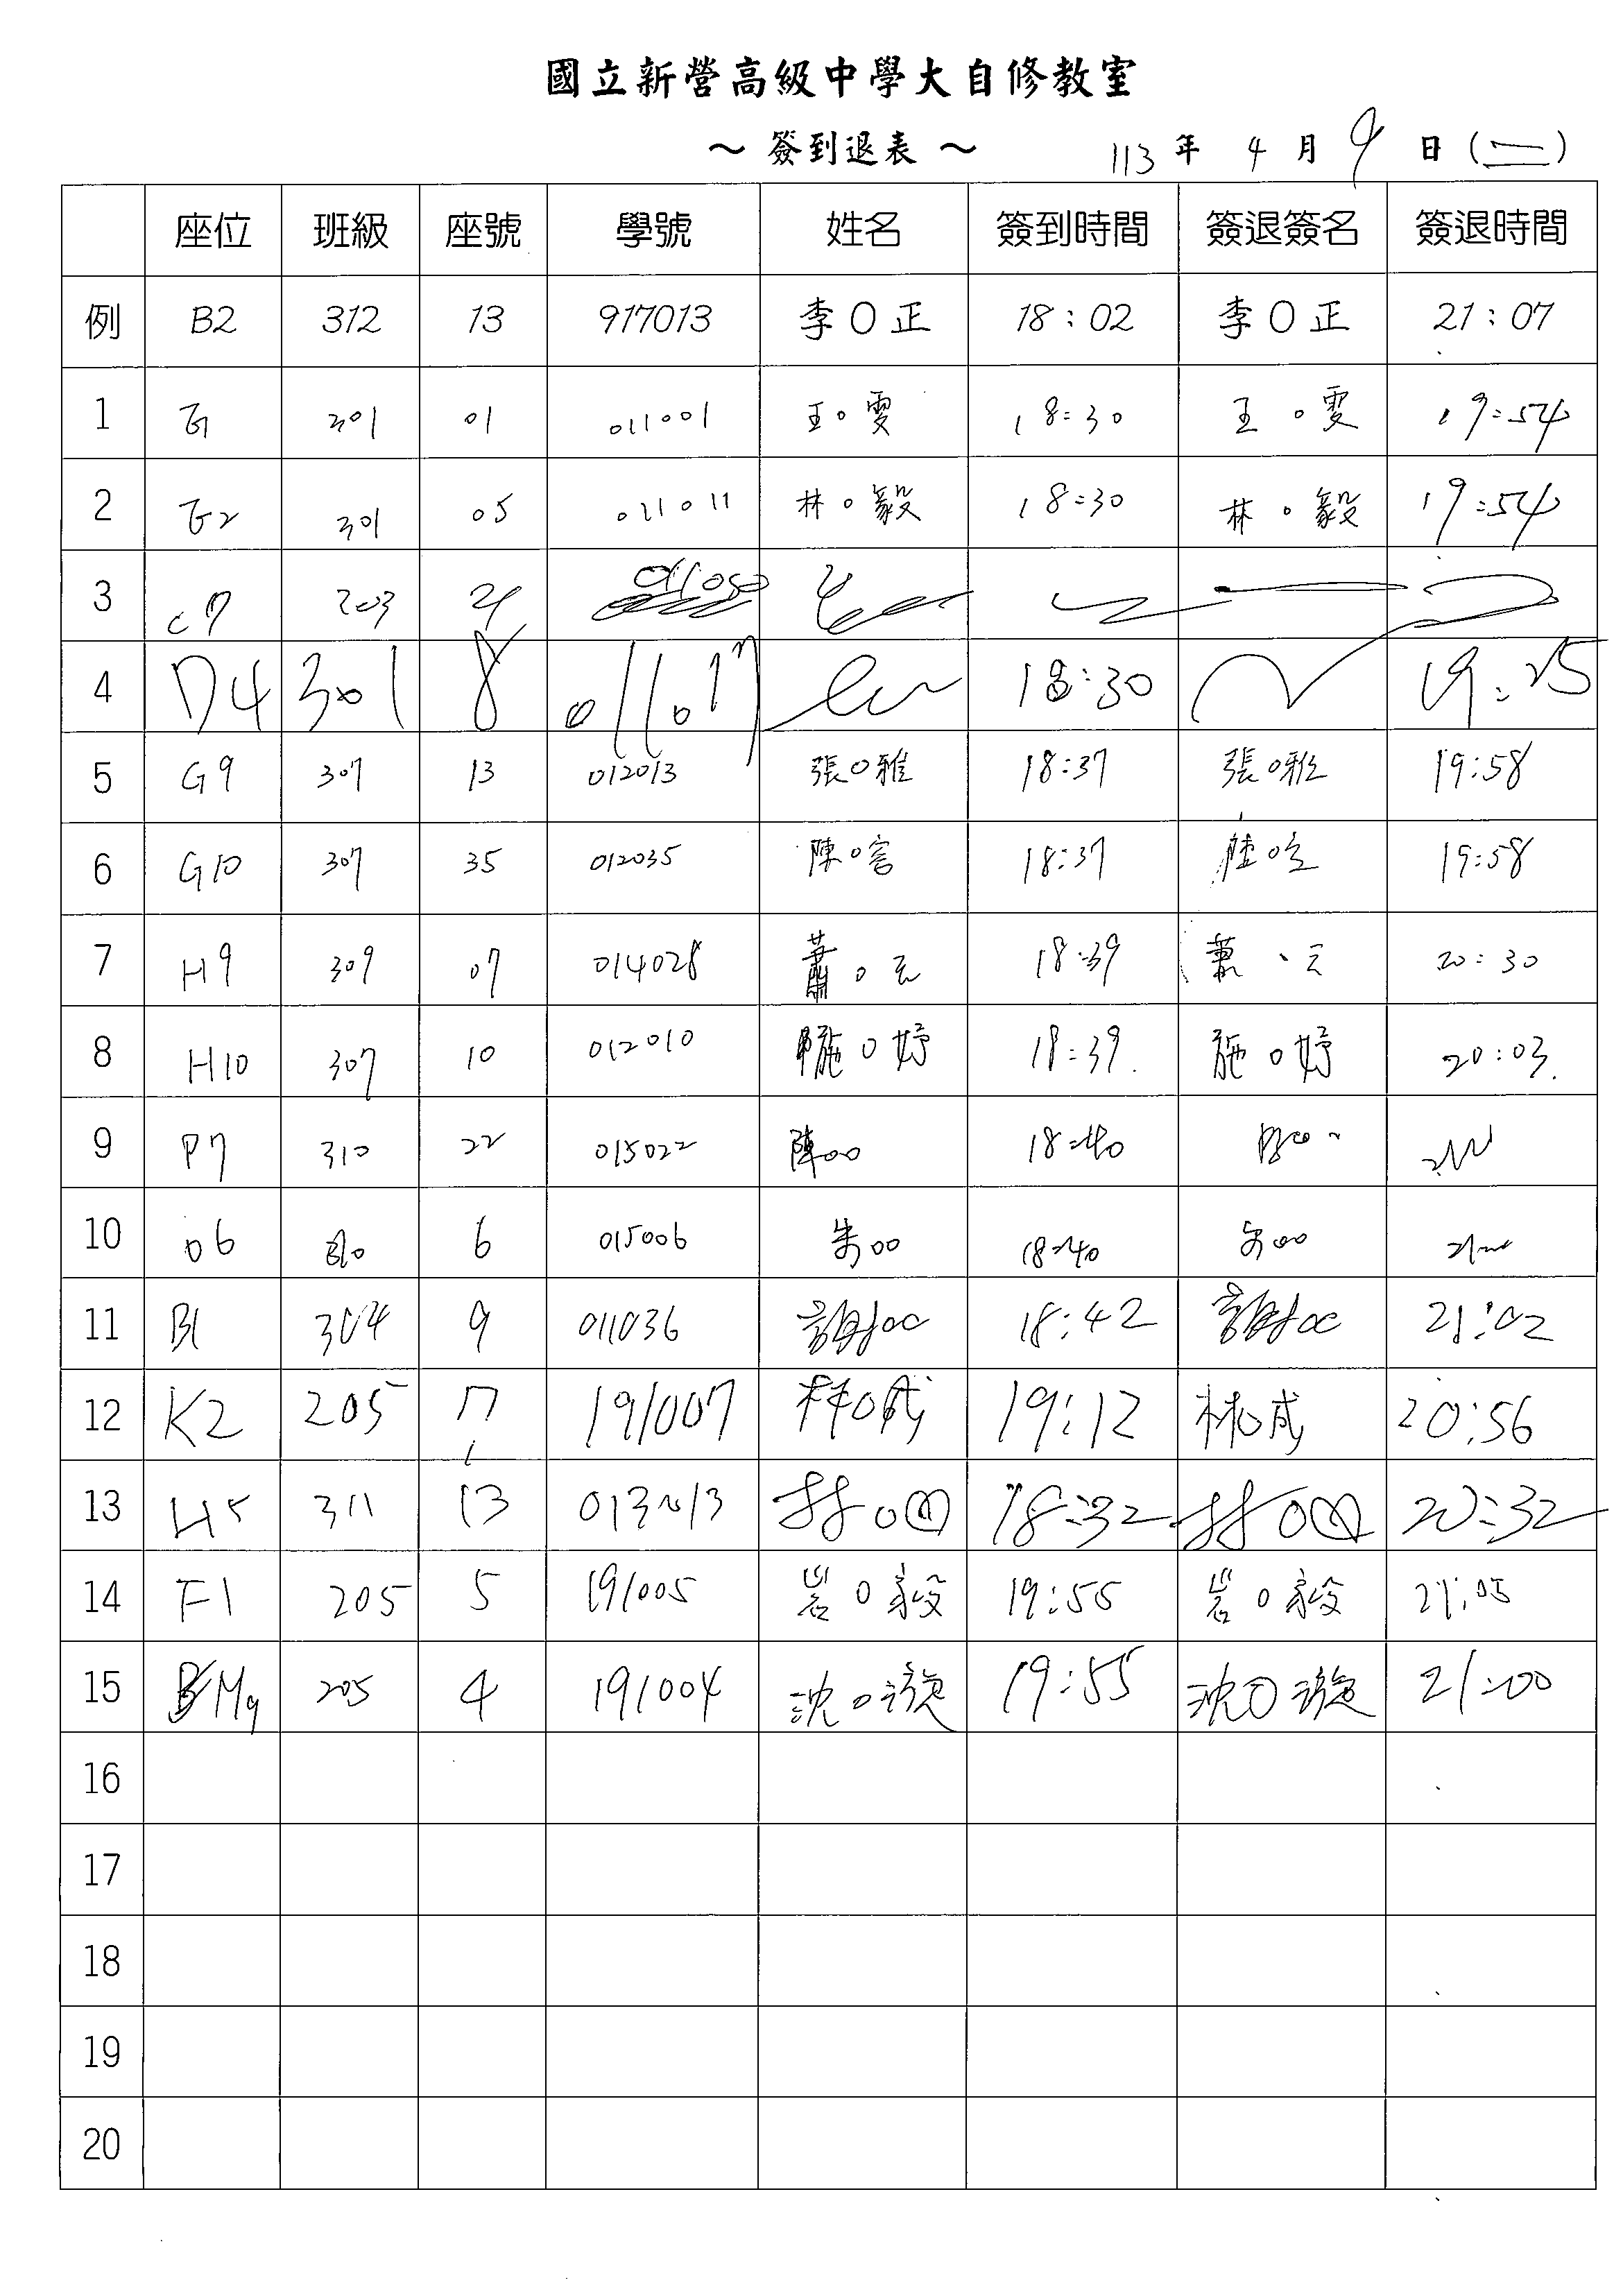 國立新營高級中學大自修教室
～ 簽到退表 ～ 113 年 4 月 9 日 (二)
座位 班級 座號 學號 姓名 簽到時間 簽退簽名 簽退時間
例 B2 312 13 917013 李O正 18:02 李O正 21:07
1 301 01 011001 王○雯 18:30 王○雯 19:54
2 301 05 011011 林○毅 18:30 林○毅 19:54
3 C7 203 011050
4 D4 301 8 011017 18:30 19:25
5 G9 307 13 012013 張○雅 18:37 張○雅 19:58
6 G10 307 35 012035 陳○ 18:37 19:58
7 H9 309 07 014028 蕭○元 18:39 蕭、元 20:30
8 H10 307 10 012010 施○妤 18:39 施○妤 20:03
9 P7 310 22 015022 陳○○ 18:40
10 06 310 6 015006 朱○○ 18:40 朱○○
11 B1 304 9 011036 謝○○ 18:42 謝○○ 21:02
12 K2 205 7 191007 林○成 19:12 林○成 20:56
13 H5 311 13 013013 18:32 20:32
14 F1 205 5 191005 岩○毅 19:55 岩○毅 21:05
15 M9 205 4 191004 沈○漩 19:55 沈○漩 21:00
16
17
18
19
20